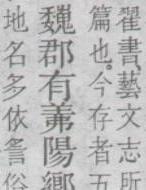 翟書藝文志所
篇也今存者五
魏郡有羛陽鄉
地名多依詧俗